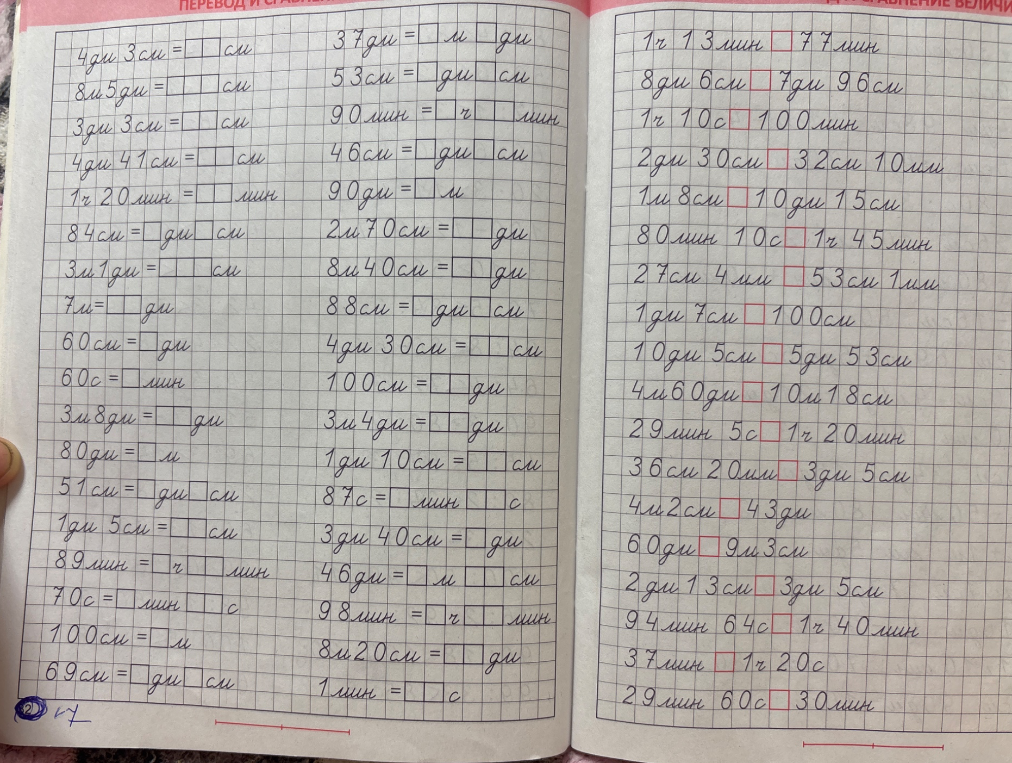 ПЕРЕВОД И СРАВНЕН
4дм 3см = □□ см
8м 5дм = □□□ см
3дм 3см = □□ см
4дм 41см = □□ см
1ч 20мин = □□ мин
84см = □ дм □ см
3м 1дм = □□□ см
7м = □□ дм
60см = □ дм
60с = □ мин
3м 8дм = □□ дм
80дм = □ м
51см = □ дм □ см
1дм 5см = □□ см
89мин = □ ч □□ мин
70с = □ мин □□ с
100см = □ м
69см = □ дм □ см
37дм = □ м □ дм
53см = □ дм □ см
90мин = □ ч □□ мин
46см = □ дм □ см
90дм = □ м
2м 70см = □□ дм
8м 40см = □□ дм
88см = □ дм □ см
4дм 30см = □□ см
100см = □□ дм
3м 4дм = □□ дм
1дм 10см = □□ см
87с = □ мин □□ с
3дм 40см = □ дм
46дм = □ м □□ см
98мин = □ ч □□ мин
8м 20см = □□ дм
1мин = □□ с
2
СРАВНЕНИЕ ВЕЛИЧИ
1ч 13мин □ 77мин
8дм 6см □ 7дм 96см
1ч 10с □ 100мин
2дм 30см □ 32см 10мм
1м 8см □ 10дм 15см
80мин 10с □ 1ч 45мин
27см 4мм □ 53см 1мм
1дм 7см □ 100см
10дм 5см □ 5дм 53см
4м 60дм □ 10м 18см
29мин 5с □ 1ч 20мин
36см 20мм □ 3дм 5см
4м 2см □ 43дм
60дм □ 9м 3см
2дм 13см □ 3дм 5см
94мин 64с □ 1ч 40мин
37мин □ 1ч 20с
29мин 60с □ 30мин